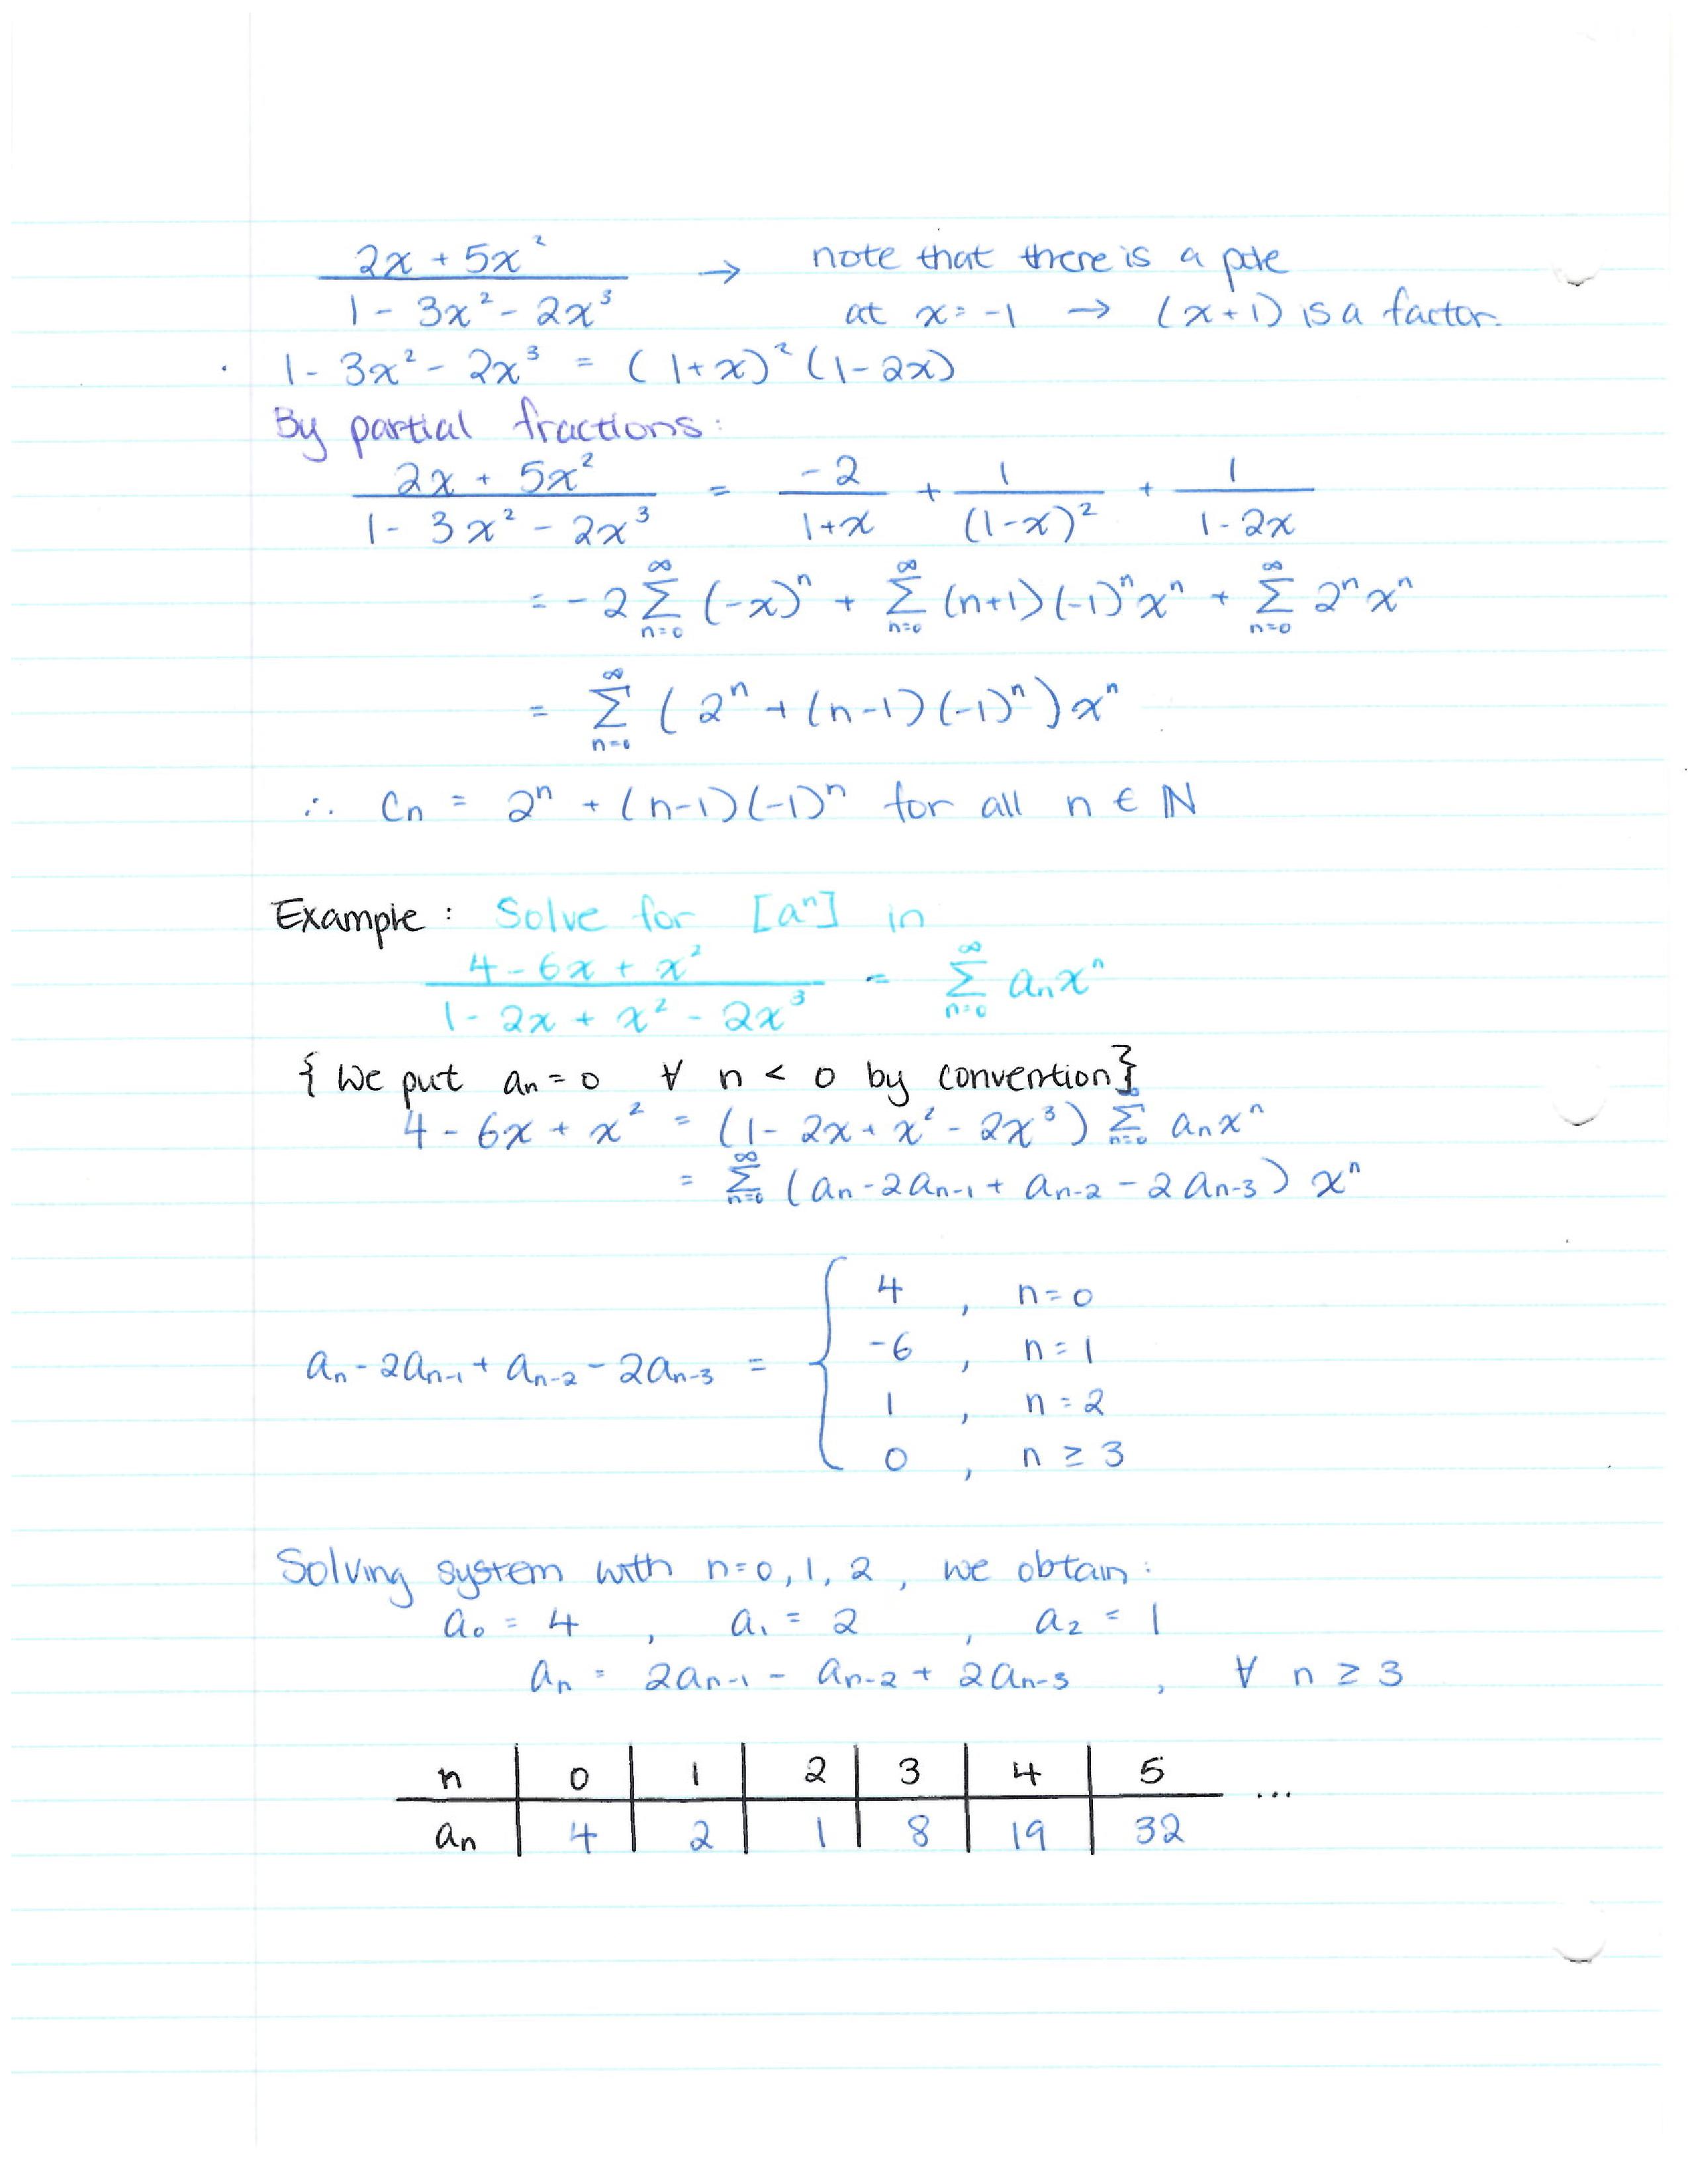 2x + 5x² / 1 - 3x² - 2x³ → note that there is a pole
at x = -1 → (x+1) is a factor.
1 - 3x² - 2x³ = (1+x)² (1-2x)
By partial fractions:
2x + 5x² / 1 - 3x² - 2x³ = -2 / 1+x + 1 / (1-x)² + 1 / 1-2x
= -2 ∑_{n=0}^∞ (-x)ⁿ + ∑_{n=0}^∞ (n+1)(-1)ⁿxⁿ + ∑_{n=0}^∞ 2ⁿxⁿ
= ∑_{n=0}^∞ (2ⁿ + (n-1)(-1)ⁿ)xⁿ
∴ Cn = 2ⁿ + (n-1)(-1)ⁿ for all n ∈ ℕ
Example: Solve for [aⁿ] in
4 - 6x + x² / 1 - 2x + x² - 2x³ = ∑_{n=0}^∞ aₙxⁿ
{ We put aₙ = 0 ∀ n < 0 by convention}
4 - 6x + x² = (1 - 2x + x² - 2x³) ∑_{n=0}^∞ aₙxⁿ
= ∑_{n=0}^∞ (aₙ - 2aₙ₋₁ + aₙ₋₂ - 2aₙ₋₃) xⁿ
aₙ - 2aₙ₋₁ + aₙ₋₂ - 2aₙ₋₃ = {
4 , n=0
-6 , n=1
1 , n=2
0 , n ≥ 3
Solving system with n=0,1,2, we obtain:
a₀ = 4 , a₁ = 2 , a₂ = 1
aₙ = 2aₙ₋₁ - aₙ₋₂ + 2aₙ₋₃ , ∀ n ≥ 3
n 0 1 2 3 4 5 ...
aₙ 4 2 1 8 19 32